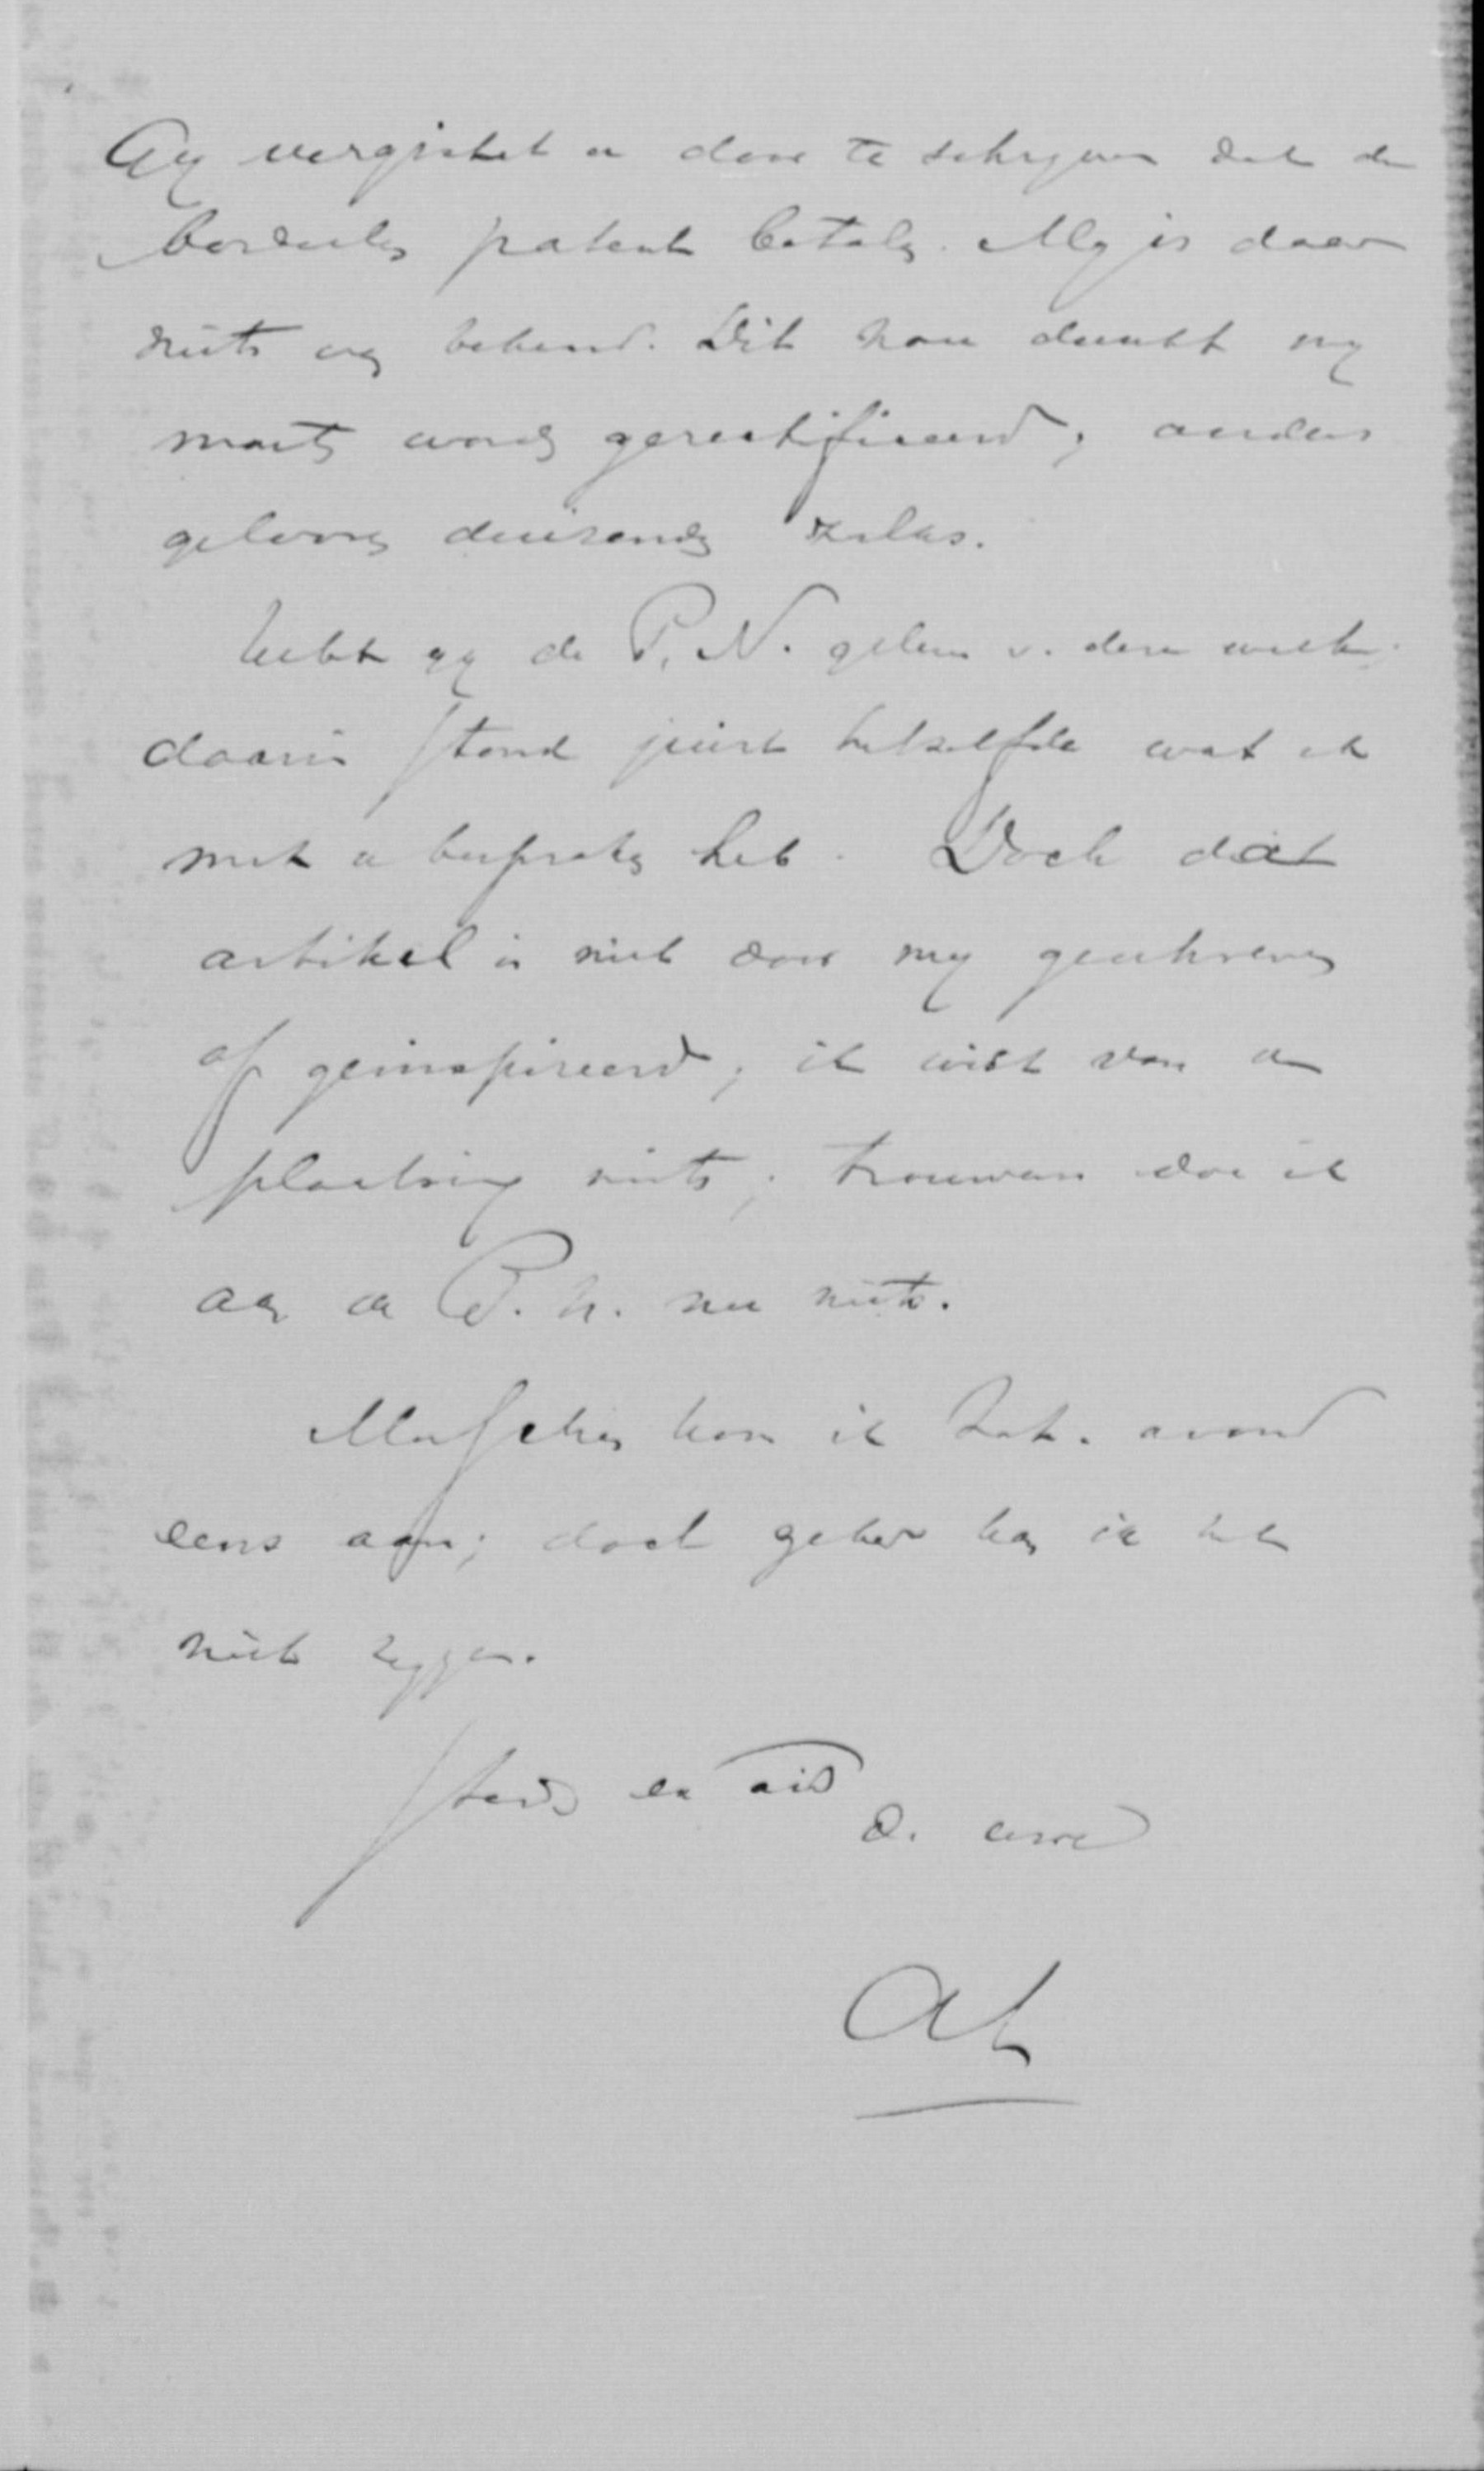 Gy vergistet u door te schryven dat de
bordeelen patent betalen. My is daar
niets van bekend. Dit zou dunkt my
moeten worden gerectificeerd; anders
gelooven duizenden zulks.
Hebt gy de P. N. gelezen v. deze week;
daarin stond juist hetzelfde wat ik
met u besproken heb. Doch dàt
artikel is niet door my geschreven
of geinspireerd; ik wist van de
plaatsing niets; trouwens doe ik
aan de P. N. nu niets.
Misschien kom ik Zat. avond
eens aan; doch zeker kan ik het
niet zeggen.
steeds en altijd
d. uwe